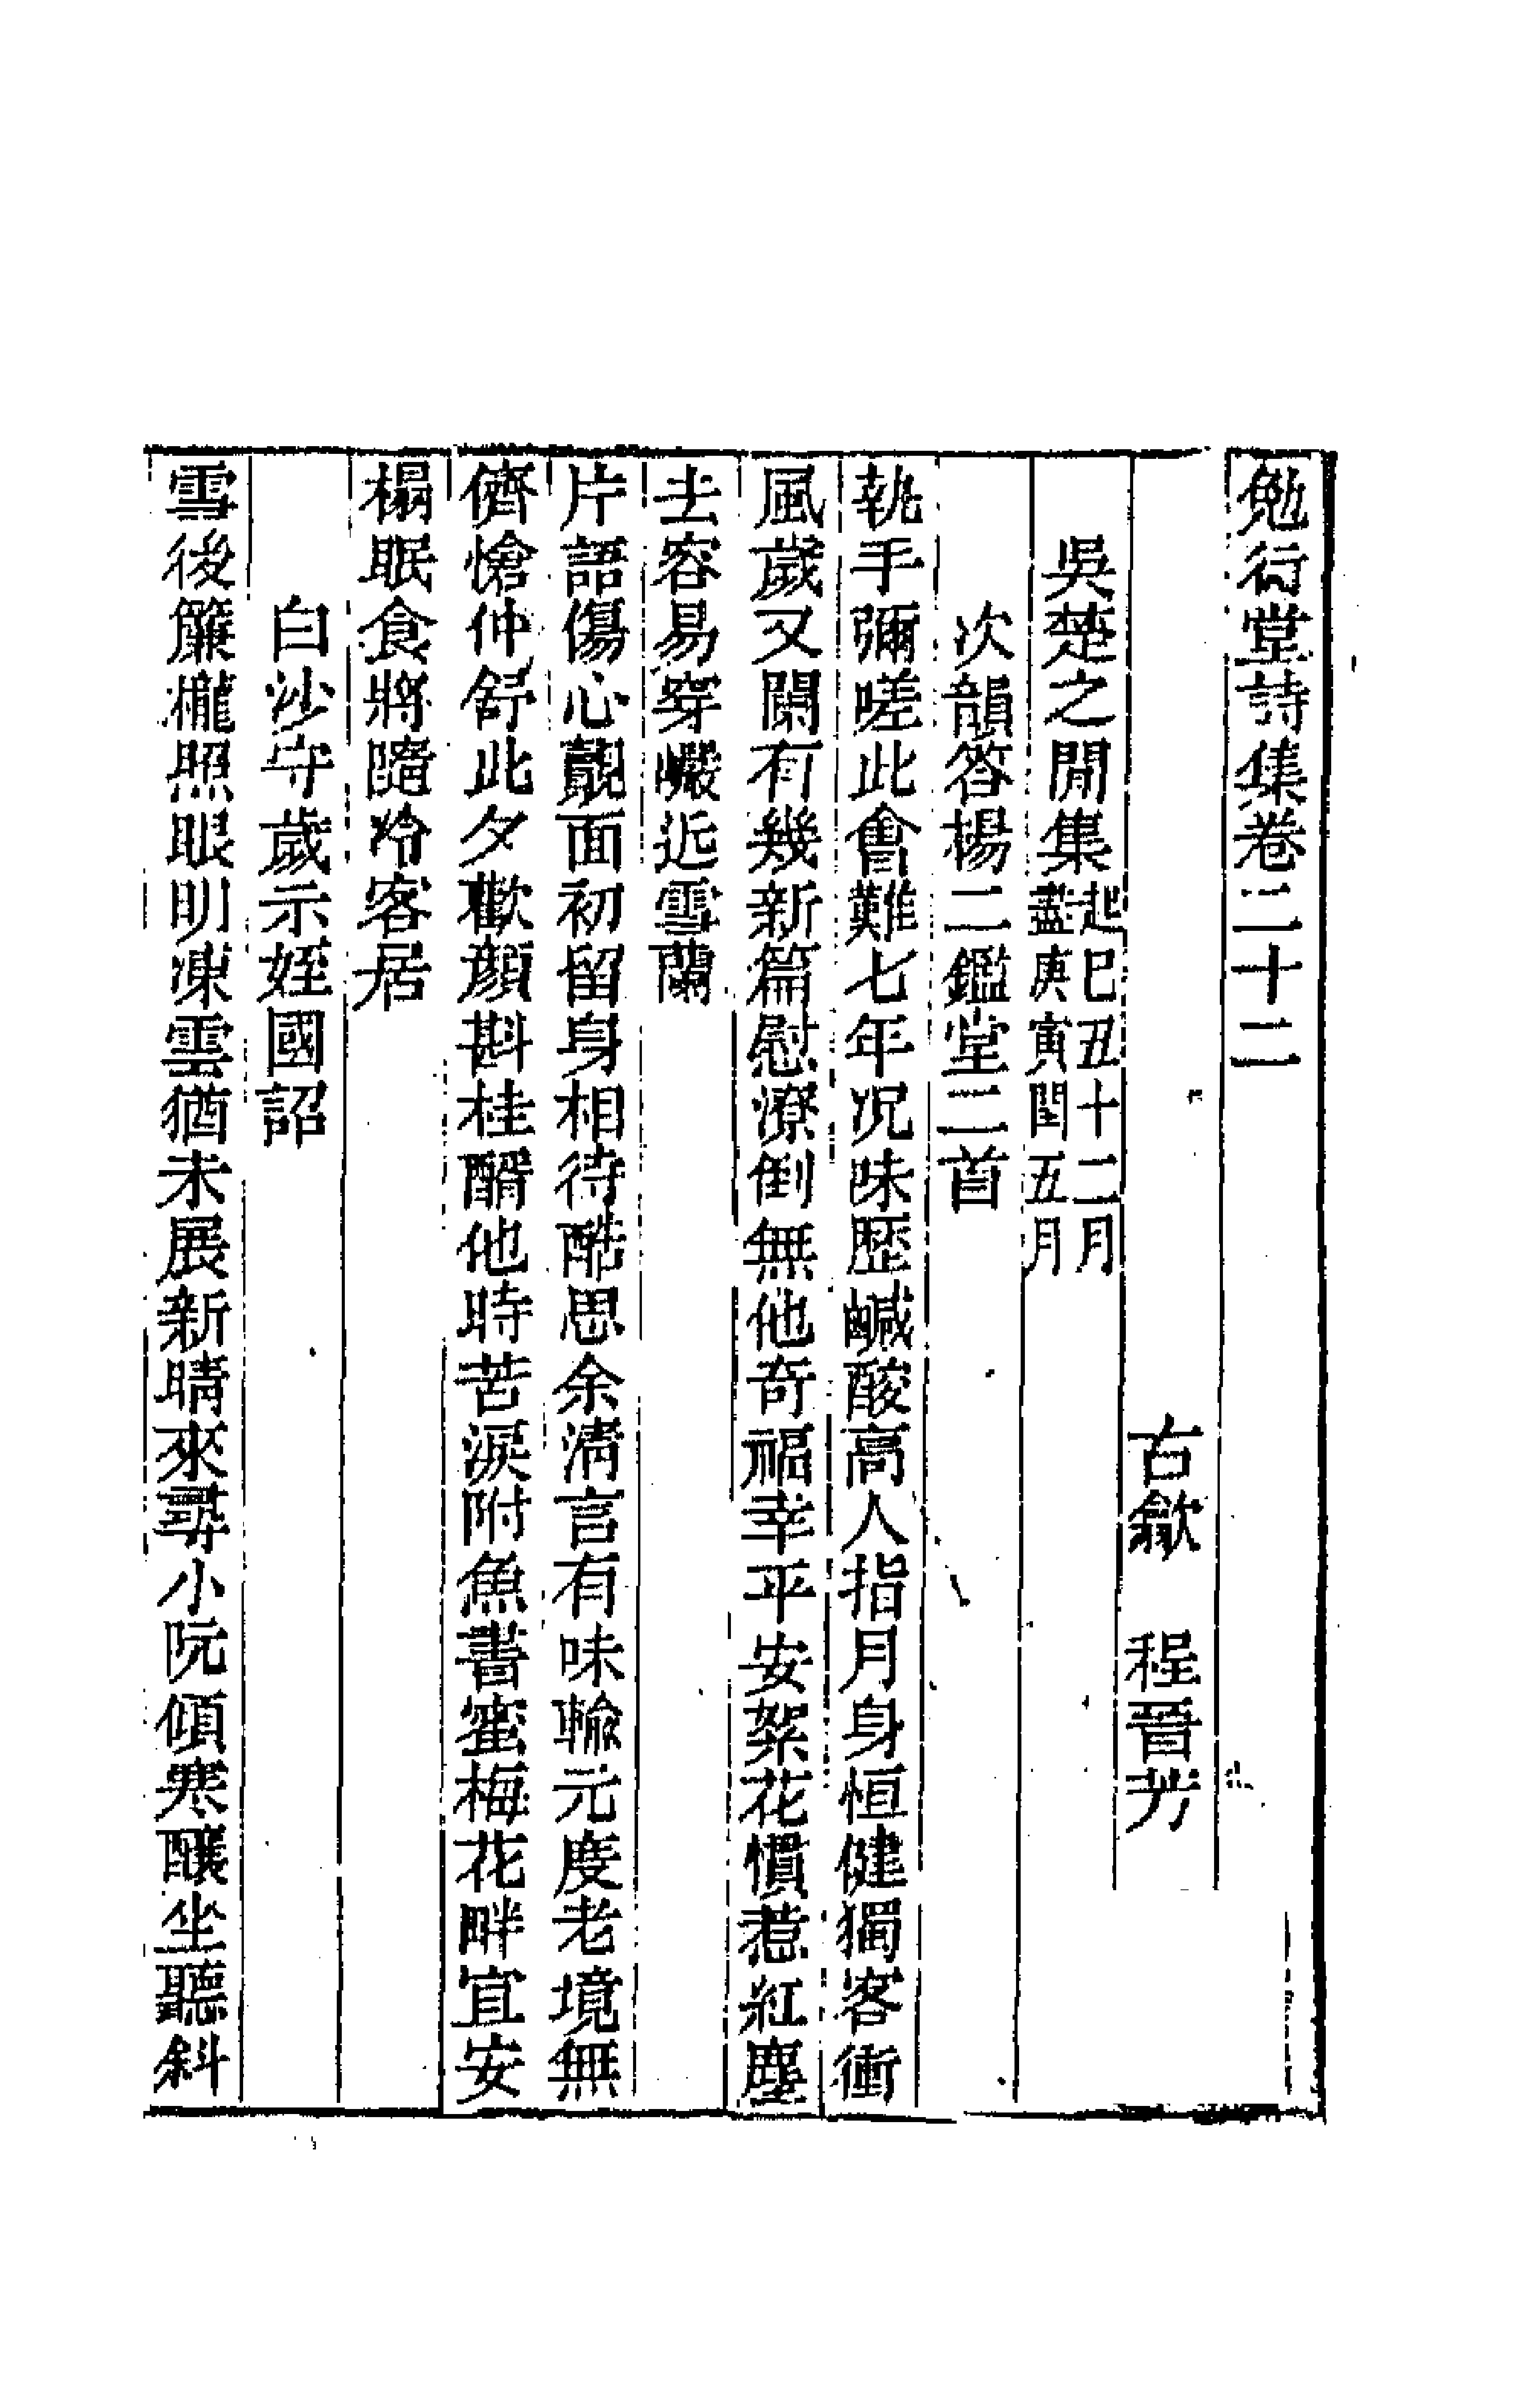 勉行堂詩集卷二十二
古歙　程晉芳
吳楚之閒集起已丑十二月盡庚寅閏五月
次韻答楊二鑑堂二首
執手彌嗟此會難七年況味歷鹹酸高人指月身恒健獨客衝
風歲又闌有幾新篇慰潦倒無他奇福幸平安絮花慣惹紅塵
去容易穿巖近雪蘭
片語傷心覿面初留身相待酷思余清言有味輸元度老境無
儕愴仲舒此夕歡顏斟桂醑他時苦淚附魚書蜜梅花畔宜安
榻眠食將隨冷客居
白沙守歲示姪國詔
雪後簾櫳照眼明凍雲猶未展新晴來尋小阮傾寒釀坐聽斜